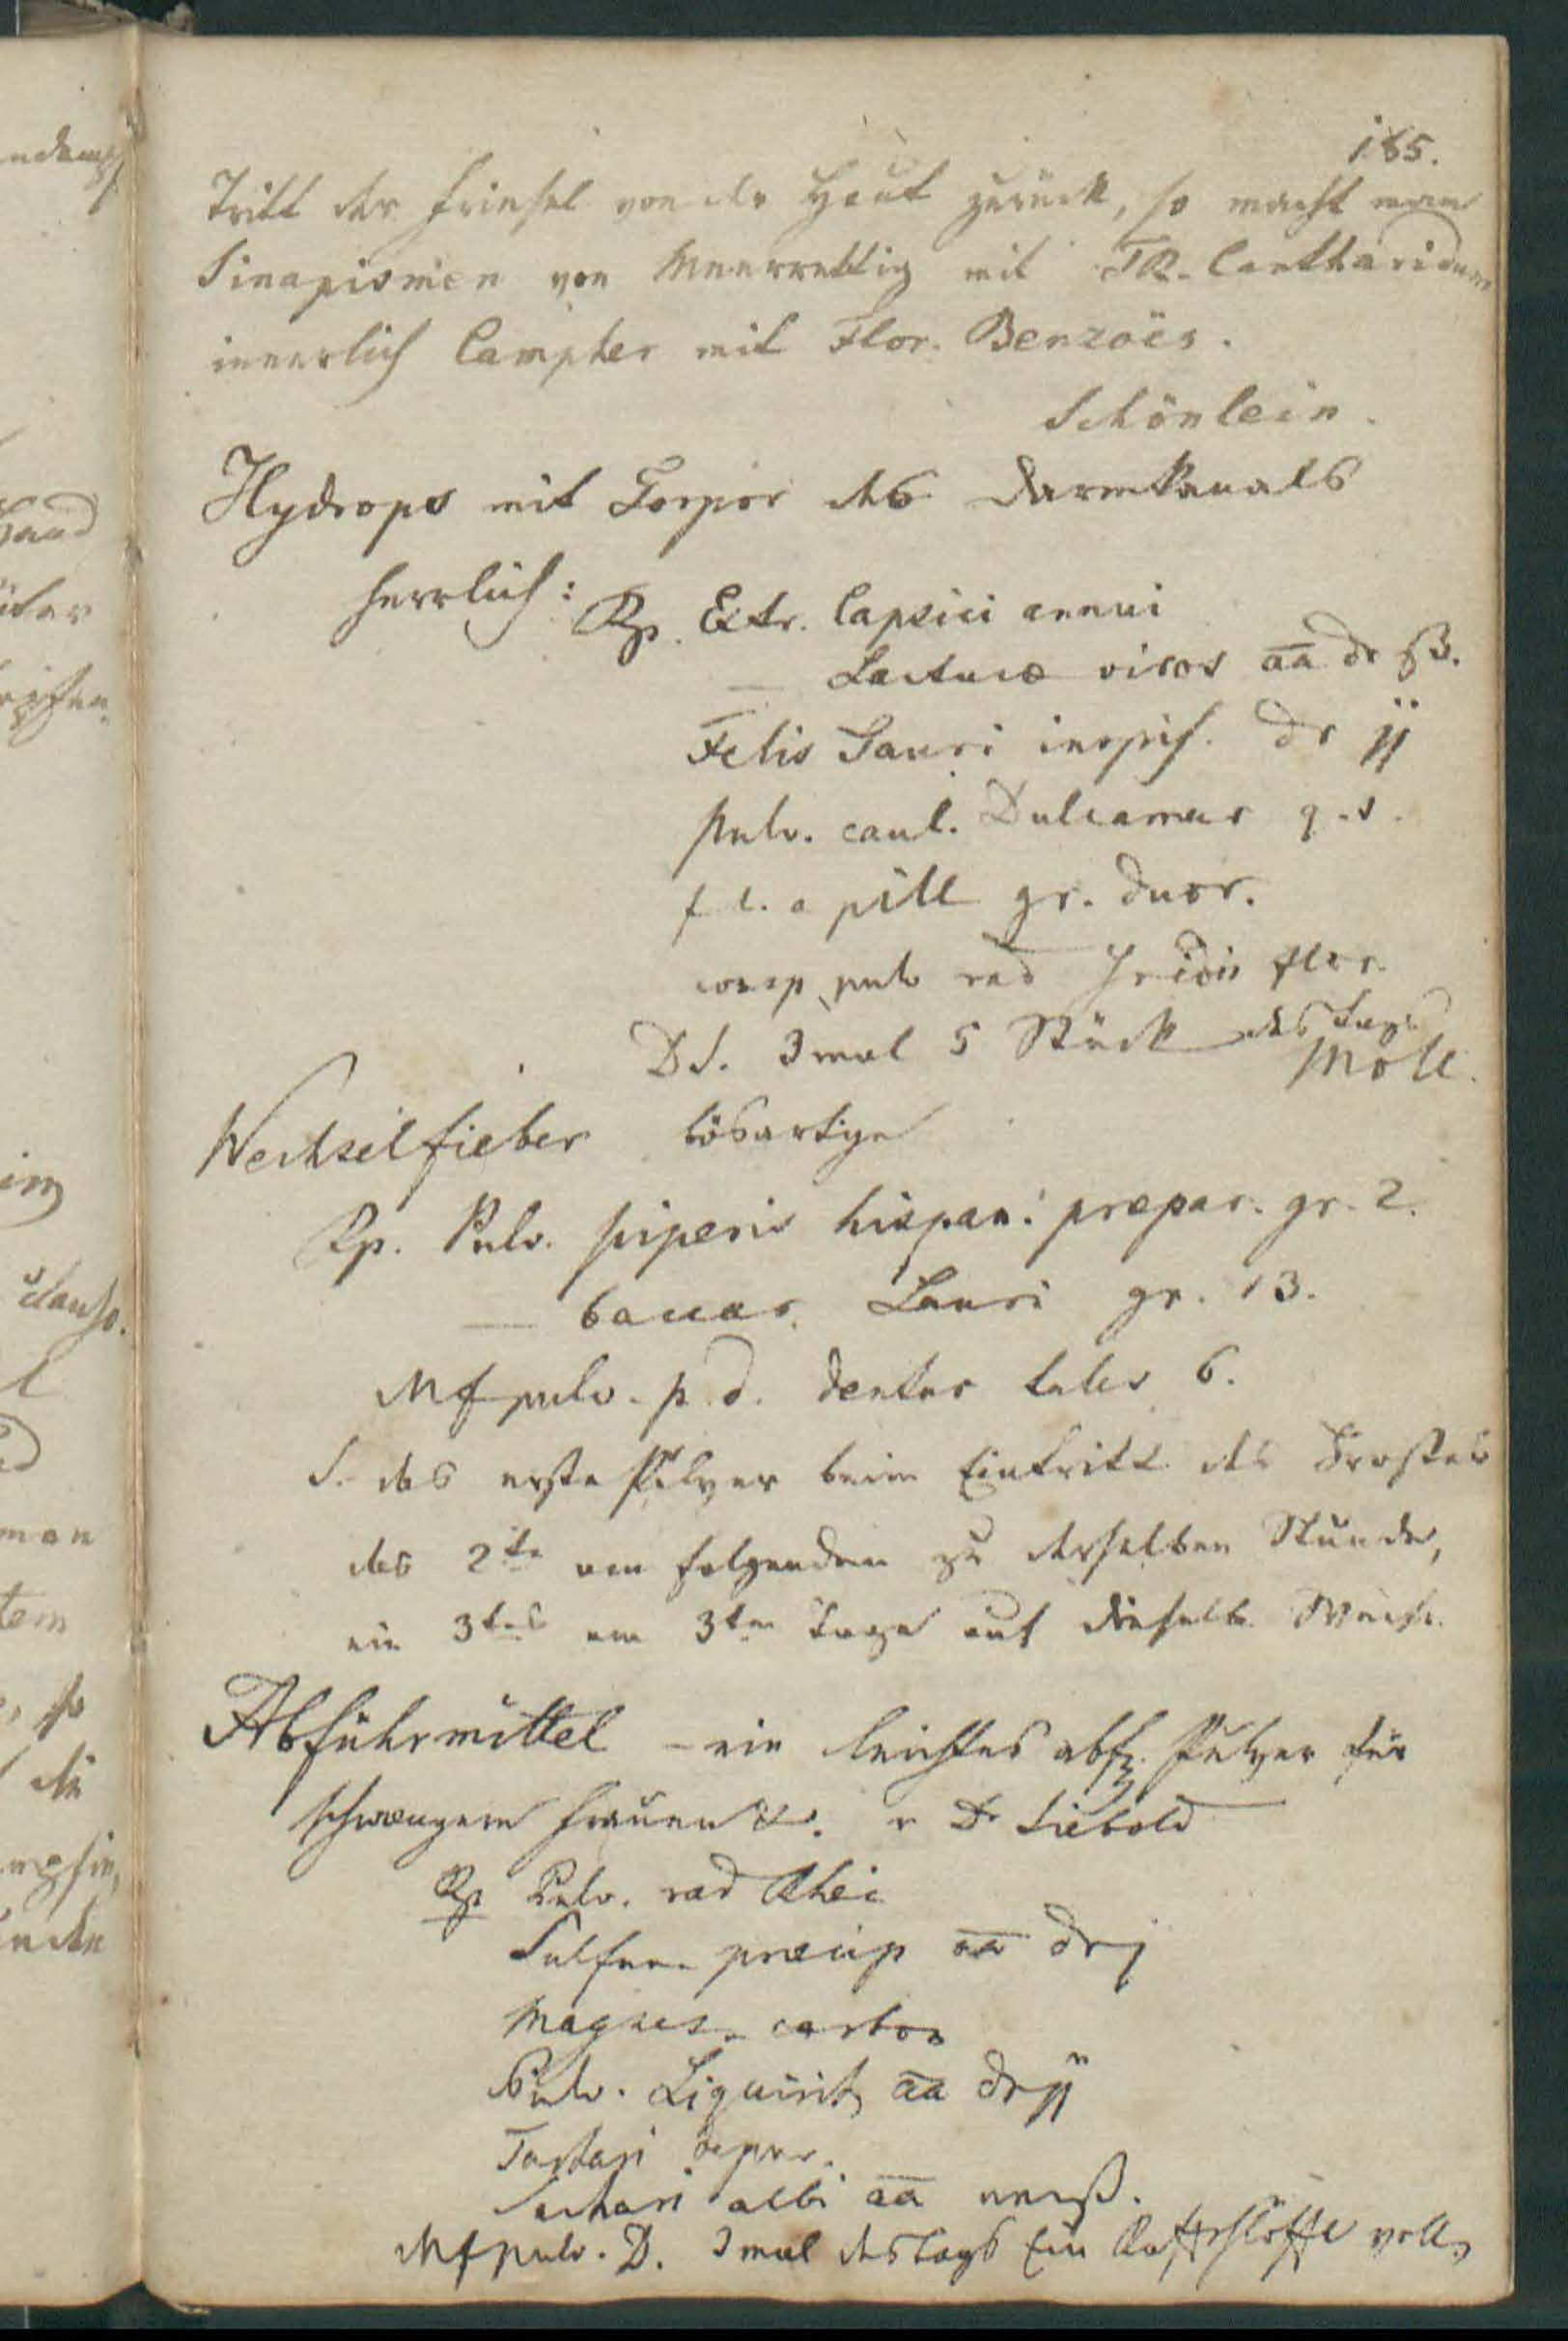 185.
Tritt der Friesel von der Haut zurück, so macht man
Sinapismen von Meerrettig mit TR. Cantharidum
innerlich Campher mit Flor. Benzoës.
Schönlein.
Hydrops mit Torpor des Darmkanals
herrlich: Rp. Extr. Capsici annui
— Lactucæ viros aa dr ß.
Felis Tauri inspiss. dr jj
pulv. caul. Dulcamar q. s.
f l. a pill gr. duor.
consp pulv rad Iridis flor.
DS. 3 mal 5 Stück des Tags
Moll.
Wechselfieber bösartige
Rp. Pulv. piperis hispan: præpar. gr. 2.
— baccar. Lauri gr. 13.
Mf pulv. p. d. dentur tales 6.
S. das erste Pulver beim Eintritt des Frostes
das 2te am folgenden zu derselben Stunde,
ein 3tes am 3ten Tage auf dieselbe Weise.
Abführmittel – ein leichtes abf. Pulver für
schwangere Frauen &. v Dr Siebold
Rp Pulv. rad Rhei
Sulfur. præcip aa dr j
Magnes. carbon
Pulv. Liquirit aa dr jj
Tartari depur.
Sachari albi aa unc ß.
Mf pulv. D. 3 mal des Tags Ein Kaffehlöffel voll.